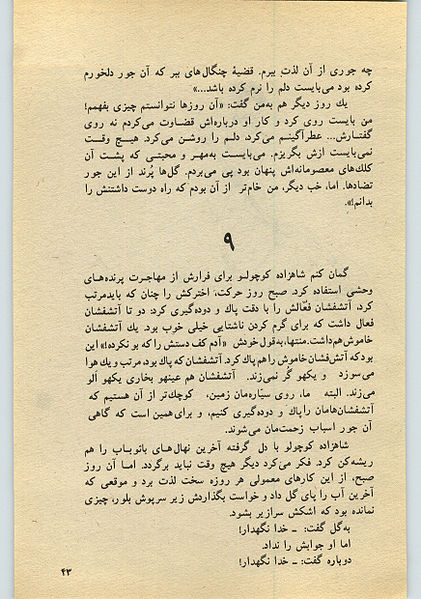 چه جوری از آن لذت ببرم. قضیهٔ چنگال‌های ببر که آن جور دلخورم
کرده بود می‌بایست دلم را نرم کرده باشد...»
یك روز دیگر هم به‌من گفت: «آن روزها نتوانستم چیزی بفهمم!
من بایست روی کرد و کار او درباره‌اش قضاوت می‌کردم نه روی
گفتارش... عطرآگینم می‌کرد. دلم را روشن می‌کرد. هیچ وقت
نمی‌بایست ازش بگریزم. می‌بایست به‌مهر و محبتی که پشت آن
کلك‌های معصومانه‌اش پنهان بود پی می‌بردم. گل‌ها پُرند از این جور
تضادها. اما، خب دیگر، من خام‌تر از آن بودم که راه دوست داشتنش را
بدانم!».
۹
گمان کنم شاهزاده کوچولو برای فرارش از مهاجرت پرنده‌های
وحشی استفاده کرد. صبح روز حرکت، اخترکش را چنان که بایدمرتب
کرد، آتشفشان فعّالش را با دقت پاك و دوده‌گیری کرد: دو تا آتشفشان
فعال داشت که برای گرم کردن ناشتایی خیلی خوب بود. یك آتشفشان
خاموش‌هم‌داشت. منتها، به‌قول خودش «آدم کف دستش را که بو نکرده!» این
بود‌که آتش‌فشان خاموش را هم پاك کرد. آتشفشان که پاك بود، مرتب و یك هوا
می‌سوزد و یکهو گُر نمی‌زند. آتشفشان هم عینهو بخاری یکهو اَلو
می‌زند. البته ما، روی سیّاره‌مان زمین، کوچك‌تر از آن هستیم که
آتشفشان‌هامان را پاك و دوده‌گیری کنیم، و برای همین است که گاهی
آن جور اسباب زحمت‌مان می‌شوند.
شاهزاده کوچولو با دل گرفته آخرین نهال‌های بائوباب را هم
ریشه‌کن کرد. فکر می‌کرد دیگر هیچ وقت نباید برگردد. اما آن روز
صبح، از این کارهای معمولی هر روزه سخت لذت برد و موقعی که
آخرین آب را پای گل داد و خواست بگذاردش زیر سرپوش بلور، چیزی
نمانده بود که اشکش سرازیر بشود.
به‌گل گفت: ــ خدا نگهدار!
اما او جوابش را نداد.
دوباره گفت: ــ خدا نگهدار!
۴۳